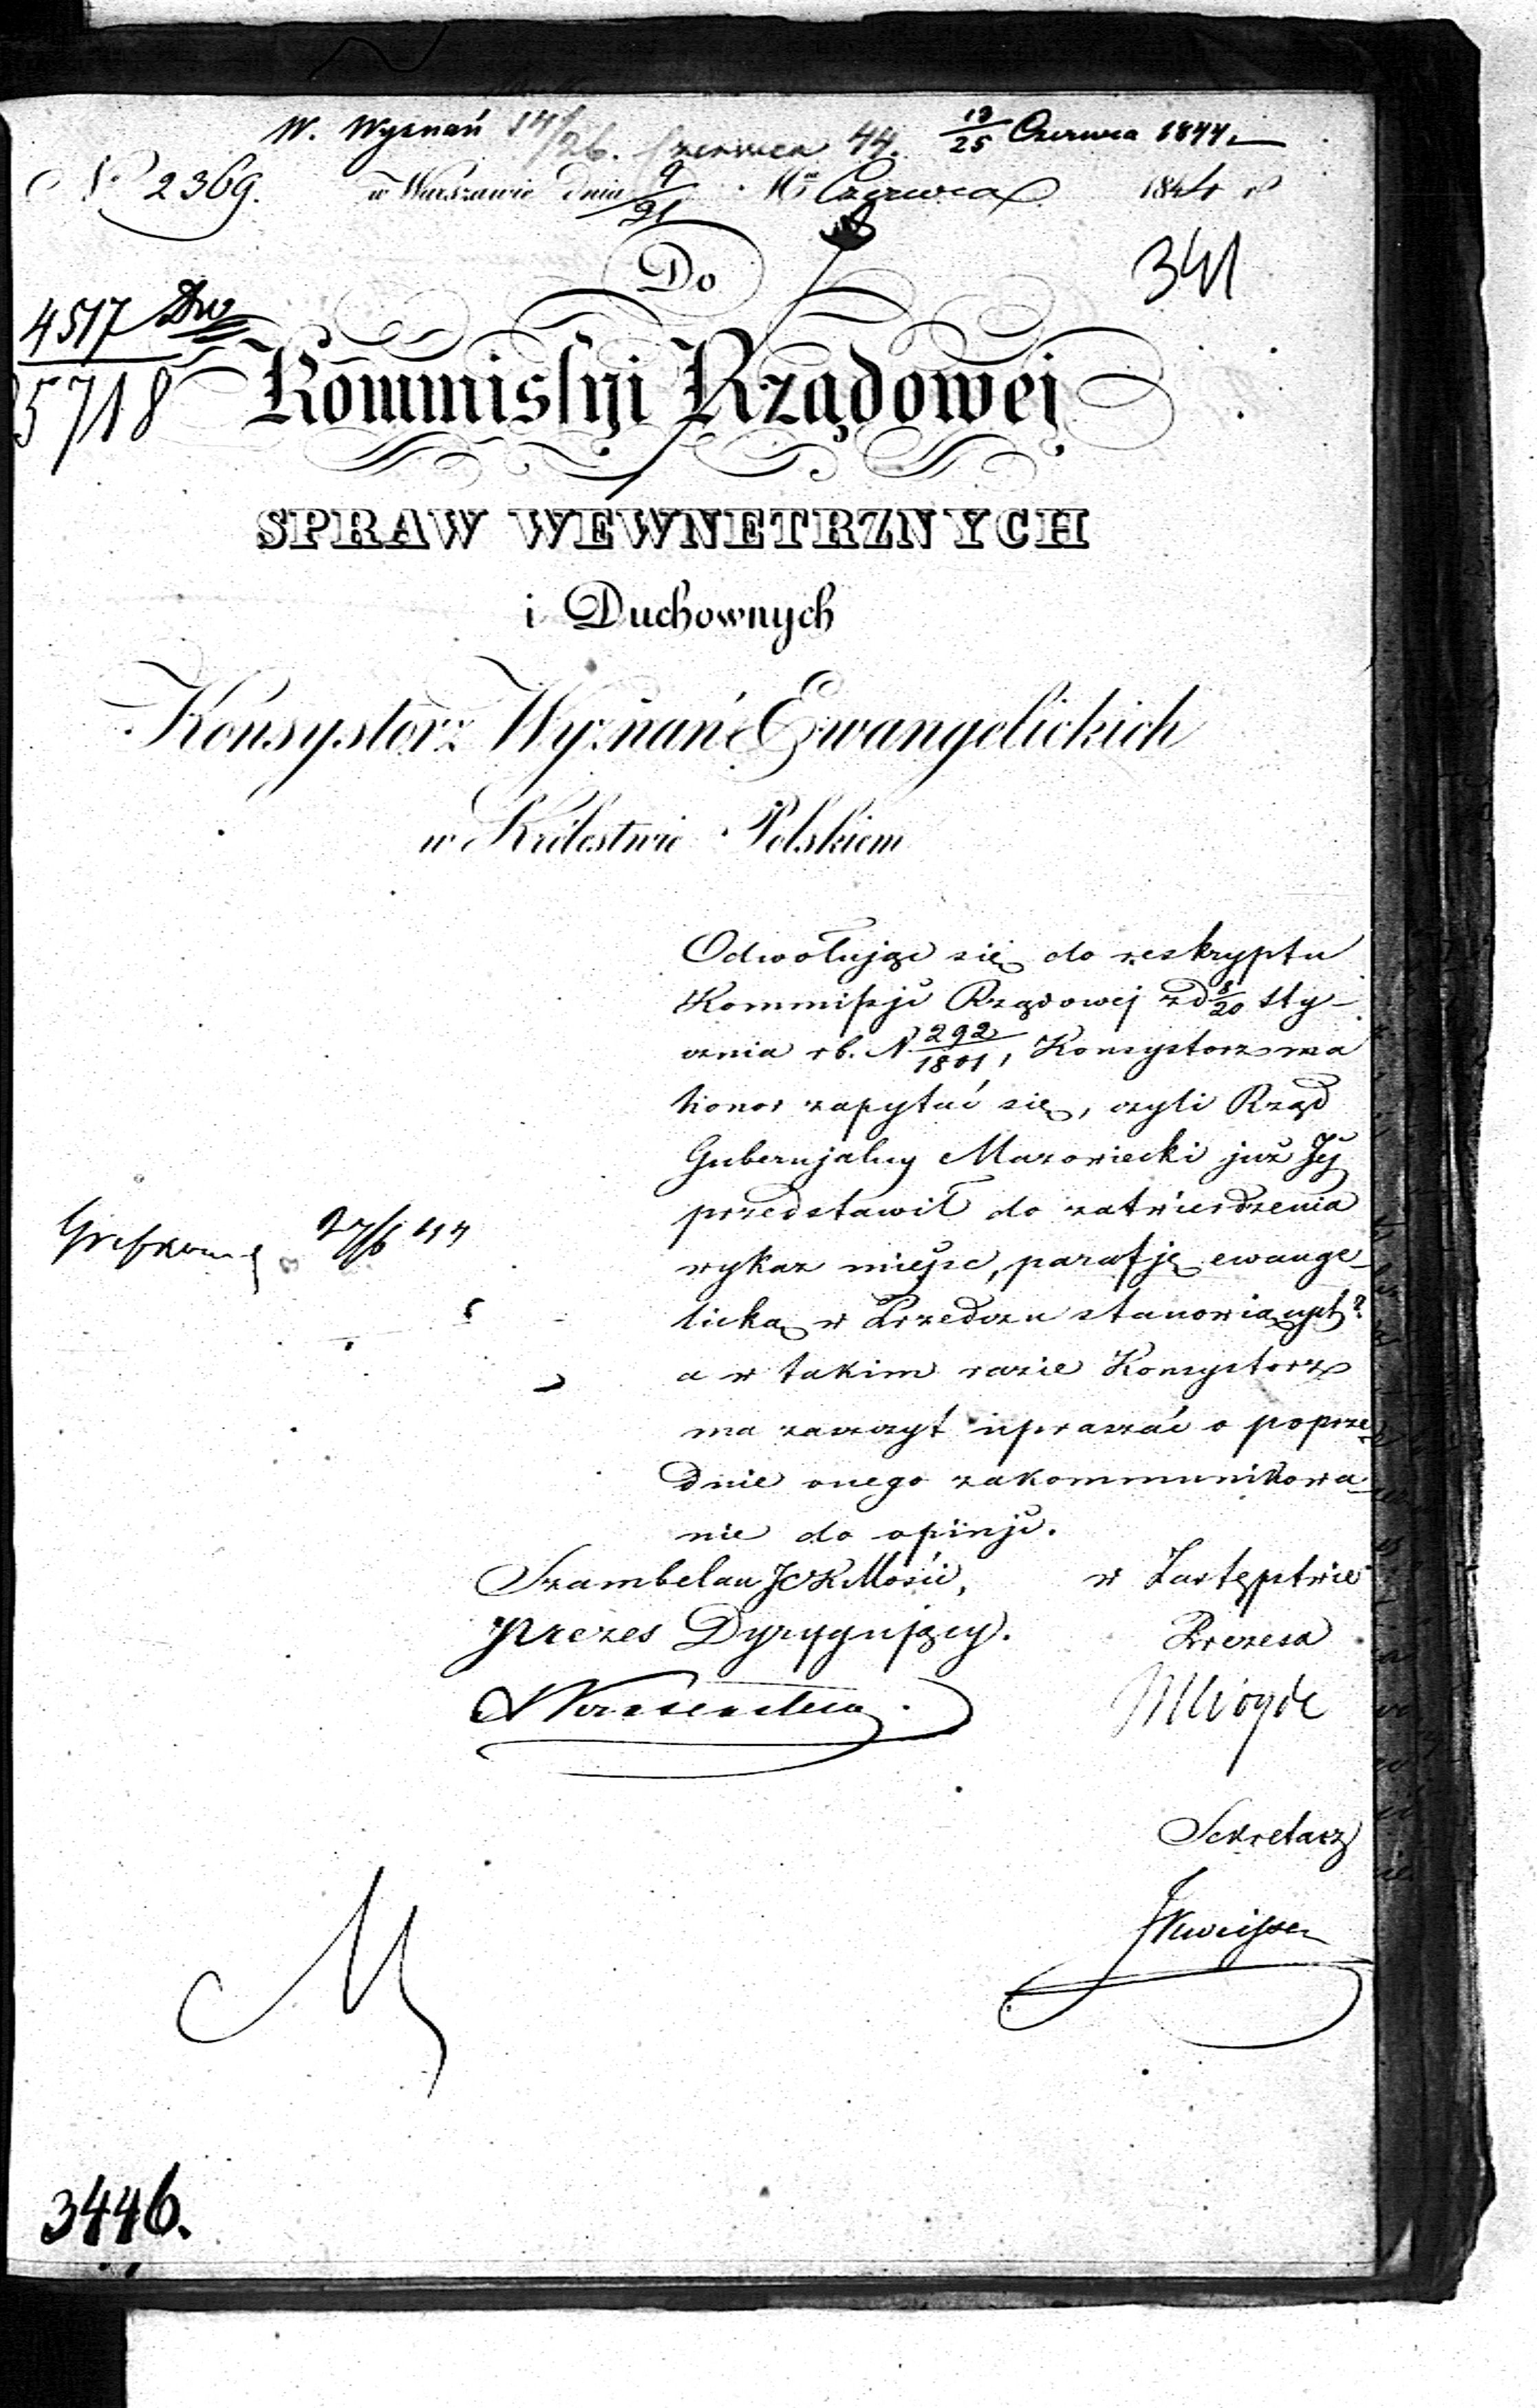 W. Wyznań 14/26. Czerwca 44. 13/25 Czerwca 1844
N. 2369. w Warszawie dnia 9/21 Mca Czerwca 1844 r
341
Do
4517
5718
Kommissyi Rządowej
SPRAW WEWNETRZNYCH
i Duchownych
Konsystorz Wyznań Ewangelickich
w Królestwie Polskiem
Odwołując się do reskryptu
Kommissji Rządowej z d 8/20 Sty-
cznia r b. N. 292/1801, Konsystorz ma
honor zapytać się, czyli Rząd
Gubernjalny Mazowiecki już Jej
przedstawił do zatwierdzenia
wykaz miejsc, parafję ewange-
licką w Przedczu stanowiących?
a w takim razie Konsystorz
ma zaszczyt upraszać o poprze-
dnie onego zakommunikowa-
nie do opinji.
27/6 44
Szambelan JCKMości, w Zastępstwie
Prezes Dyrygujący. Prezesa
Sekretarz
3446.